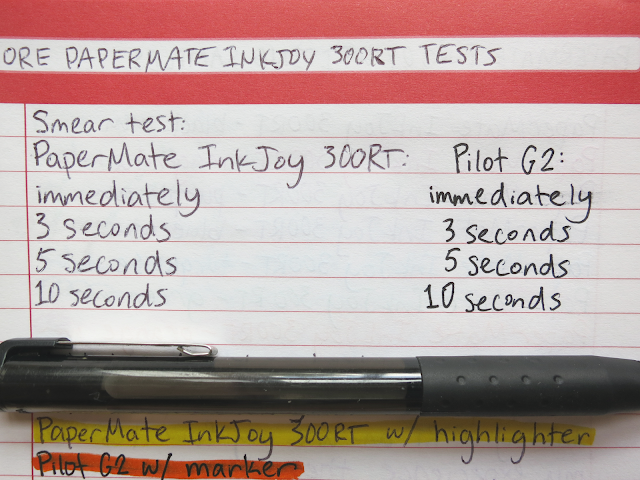 ORE PAPERMATE INKJOY 300RT TESTS
Smear test:
PaperMate InkJoy 300RT: Pilot G2:
immediately immediately
3 seconds 3 seconds
5 seconds 5 seconds
10 seconds 10 seconds
PaperMate InkJoy 300RT w/ highlighter
Pilot G2 w/ marker